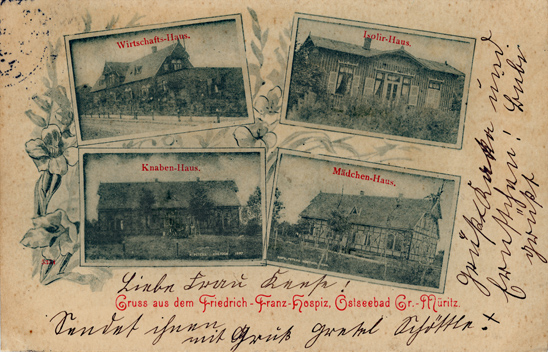 Wirtschafts-Haus.
Isolir-Haus.
Knaben-Haus.
Mädchen-Haus.
Liebe Frau
Gruss aus dem Friedrich-Franz-Hospiz, Ostseebad Gr.-Müritz.
Sendet ihnen
mit Gruß Gretel Schöttle.
und
grüßt